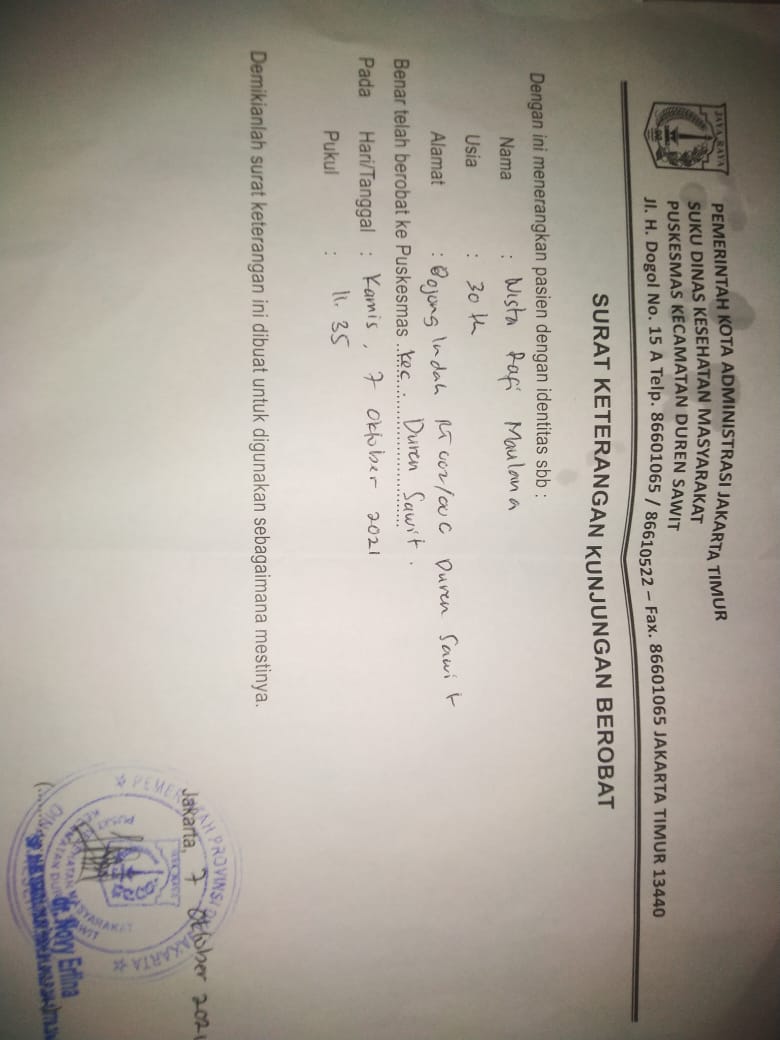 JAYA RAYA
PEMERINTAH KOTA ADMINISTRASI JAKARTA TIMUR
SUKU DINAS KESEHATAN MASYARAKAT
PUSKESMAS KECAMATAN DUREN SAWIT
Jl. H. Dogol No. 15 A Telp. 86601065 / 86610522 – Fax. 86601065 JAKARTA TIMUR 13440
SURAT KETERANGAN KUNJUNGAN BEROBAT
Dengan ini menerangkan pasien dengan identitas sbb :
Nama : Wista Rafi Maulana
Usia : 30 th
Alamat : Bojong Indah RT 002/00 Duren Sawit
Benar telah berobat ke Puskesmas kec. Duren Sawit.
Pada Hari/Tanggal : Kamis, 7 Oktober 2021
Pukul : 11.35
Demikianlah surat keterangan ini dibuat untuk digunakan sebagaimana mestinya.
Jakarta, 7 Oktober 2021
PEMERINTAH PROVINSI JAKARTA
PUSAT KESEHATAN MASYARAKAT
KECAMATAN DUREN SAWIT
dr. Novy Erfina